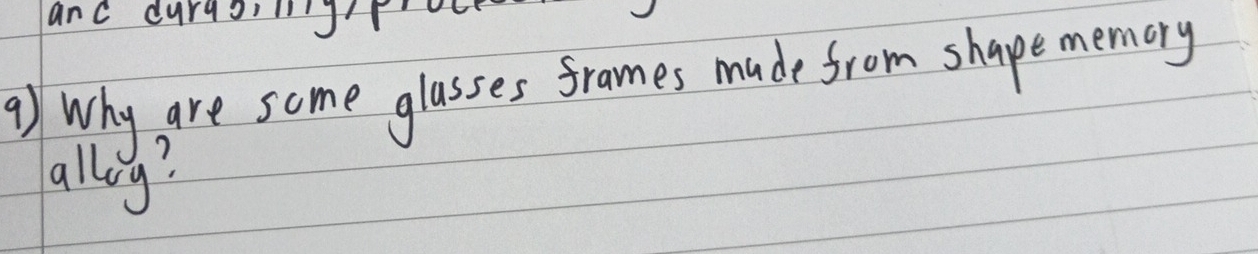 and durability, 
9) Why are some glasses frames made from shape memory
alloy?